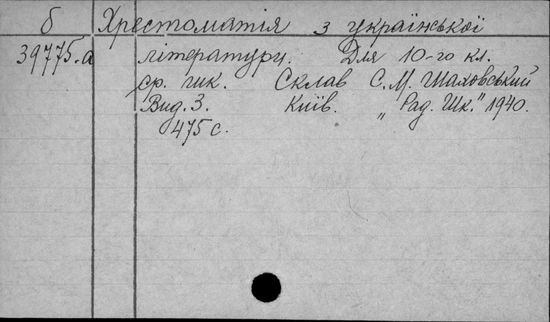 б Хрестоматія з української
39775.а літератури. Для 10-го кл.
ср. шк. Склав С. М. Шаховський
Вид. 3. Київ. „Рад. Шк." 1940.
475 с.